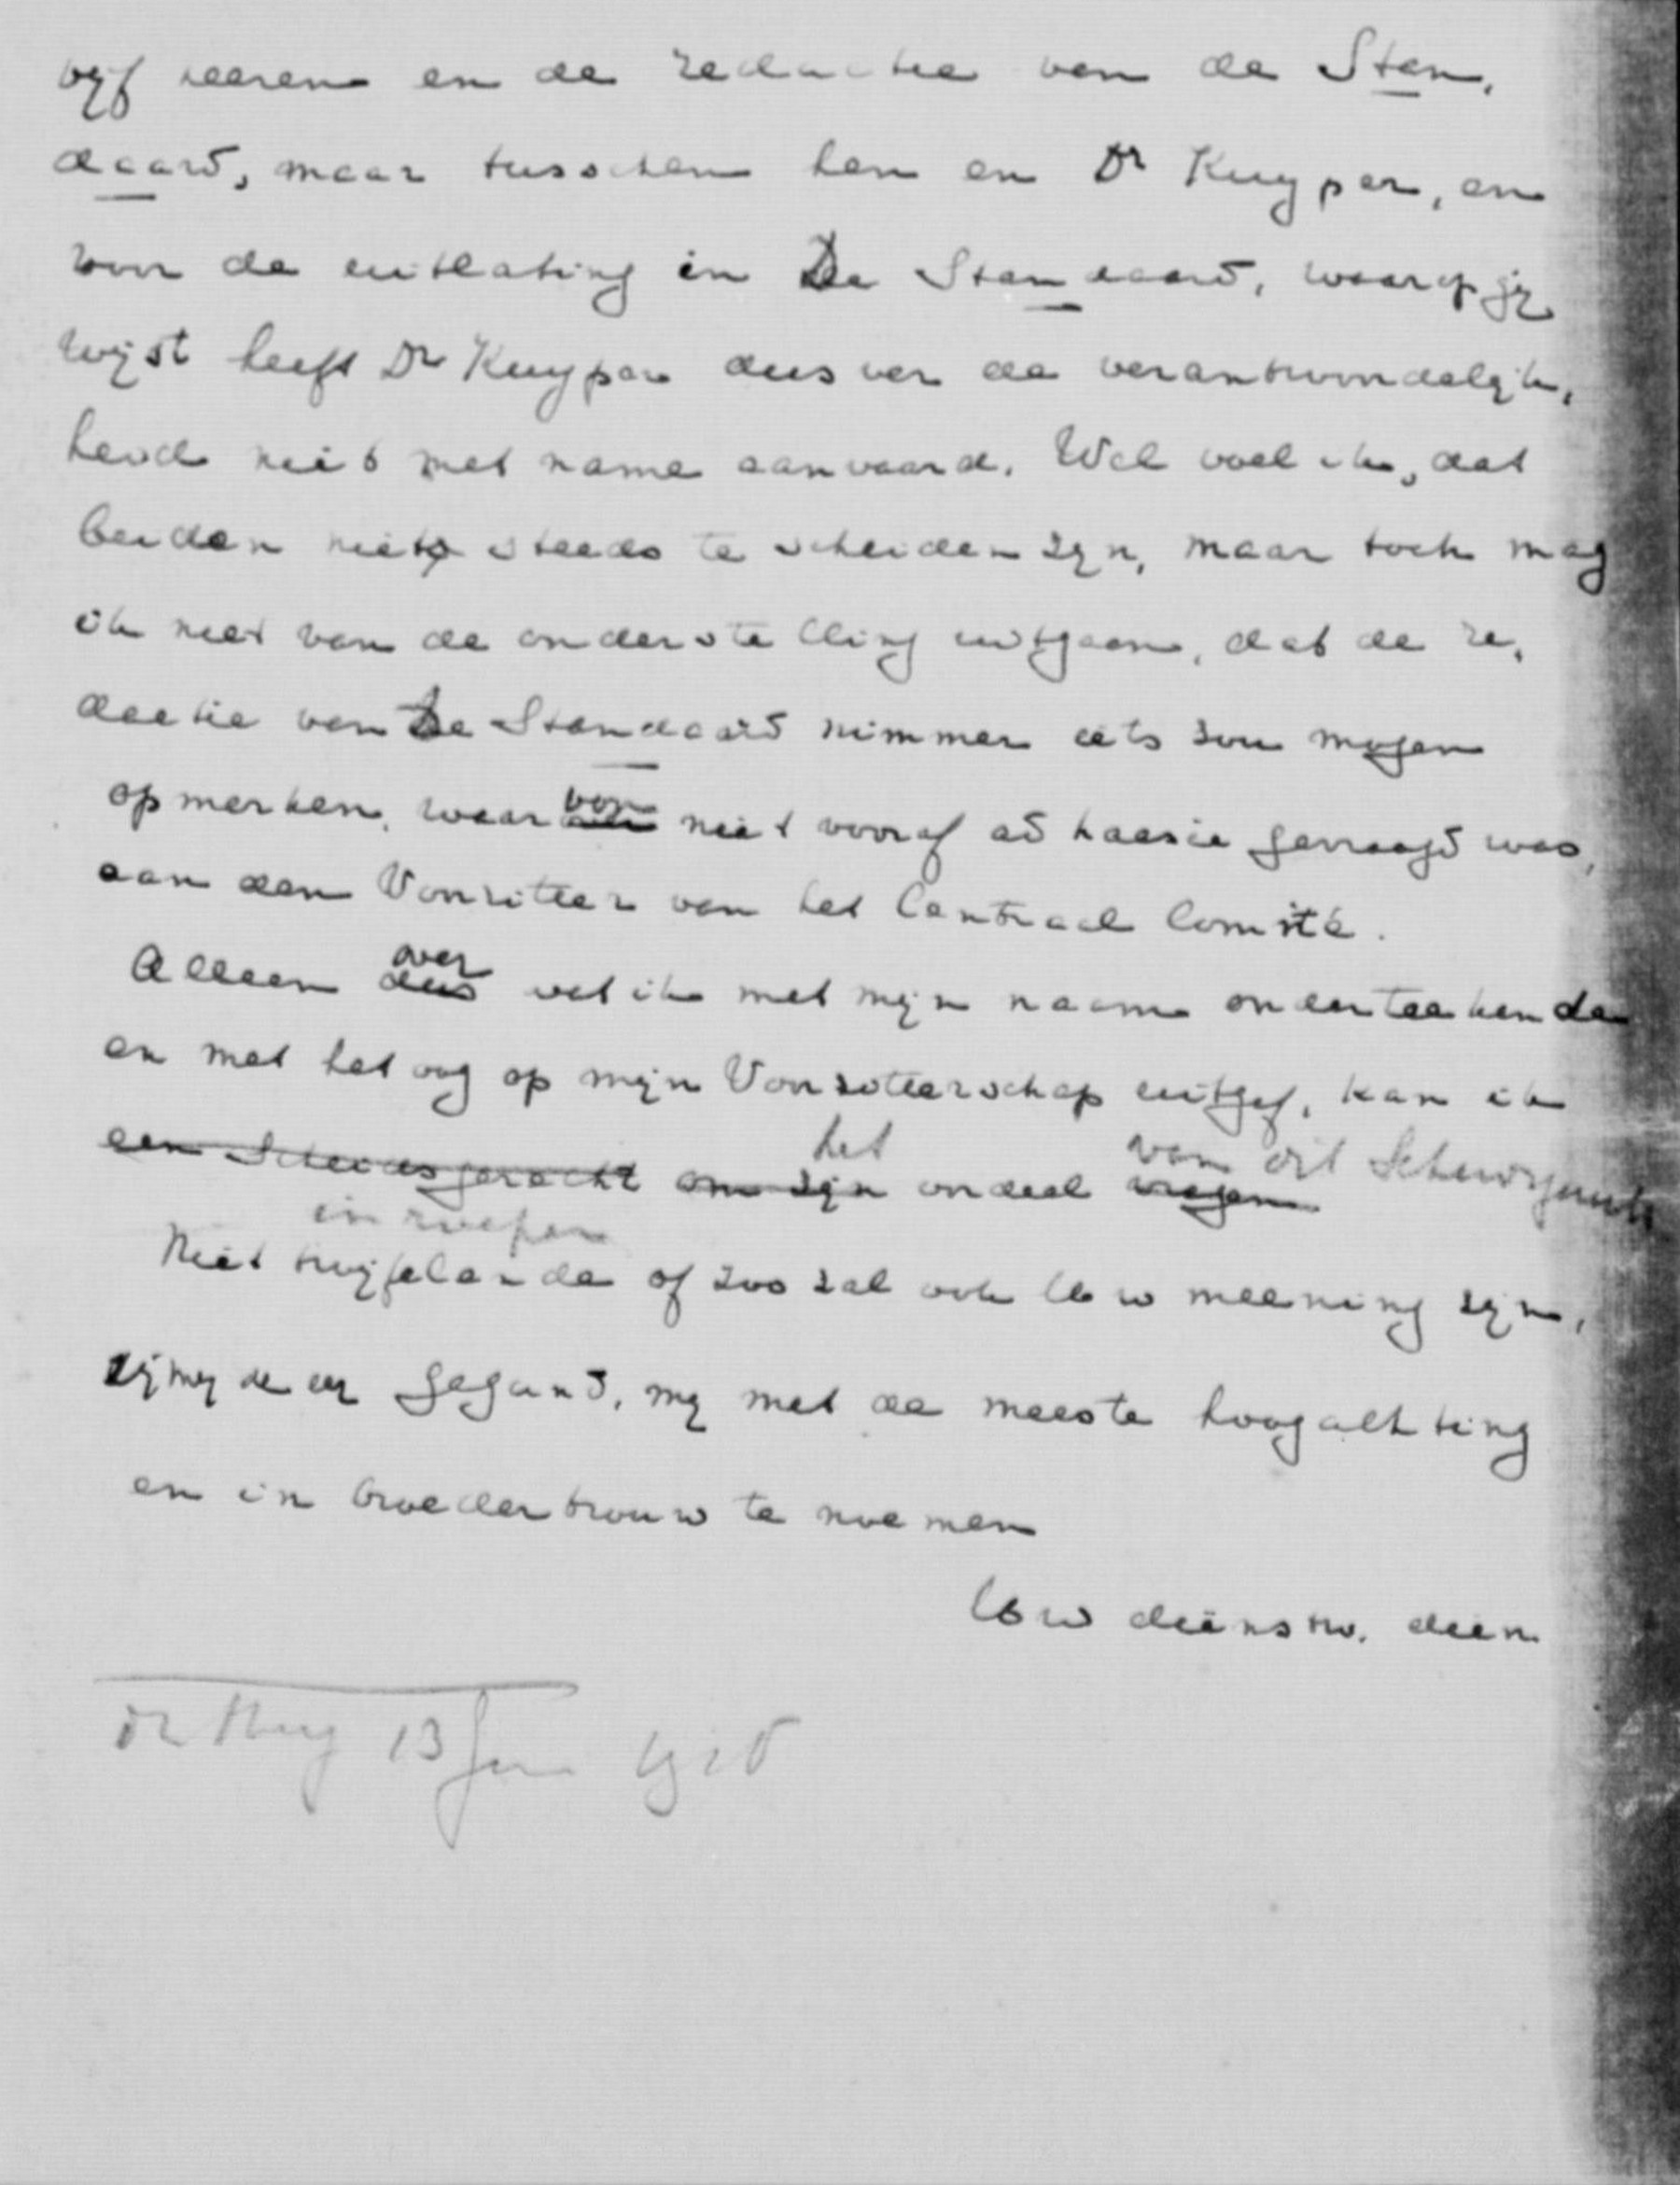 vijf heeren en de redactie van de Stan-
daard, maar tusschen hen en Dr Kuyper, en
voor de uitlating in De Standaard, waarop gij
wijst heeft Dr Kuyper dusver de verantwoordelijk-
heid niet met name aanvaard. Wel voel ik, dat
beiden niet steeds te scheiden zijn, maar toch mag
ik niet van de onderstelling uitgaan, dat de re-
dactie van De Standaard nimmer iets zou mogen
opmerken, waarvan niet vooraf ad kaesie gevraagd was,
aan den Voorzitter van het Centraal Comité.
Alleen over wat ik met mijn naam onderteekende
en met het oog op mijn Voorzitterschap uitgaf, kan ik
een Scheidsgerecht om zijn het oordeel vragen van dit Scheidsgerecht
inroepen
Niet twijfelende of zoo zal ook Uw meening zijn,
zij mij de eer gegund, mij met de meeste hoogachting
en in broedertrouw te noemen
Uw dienstw. dien.
13 Jun